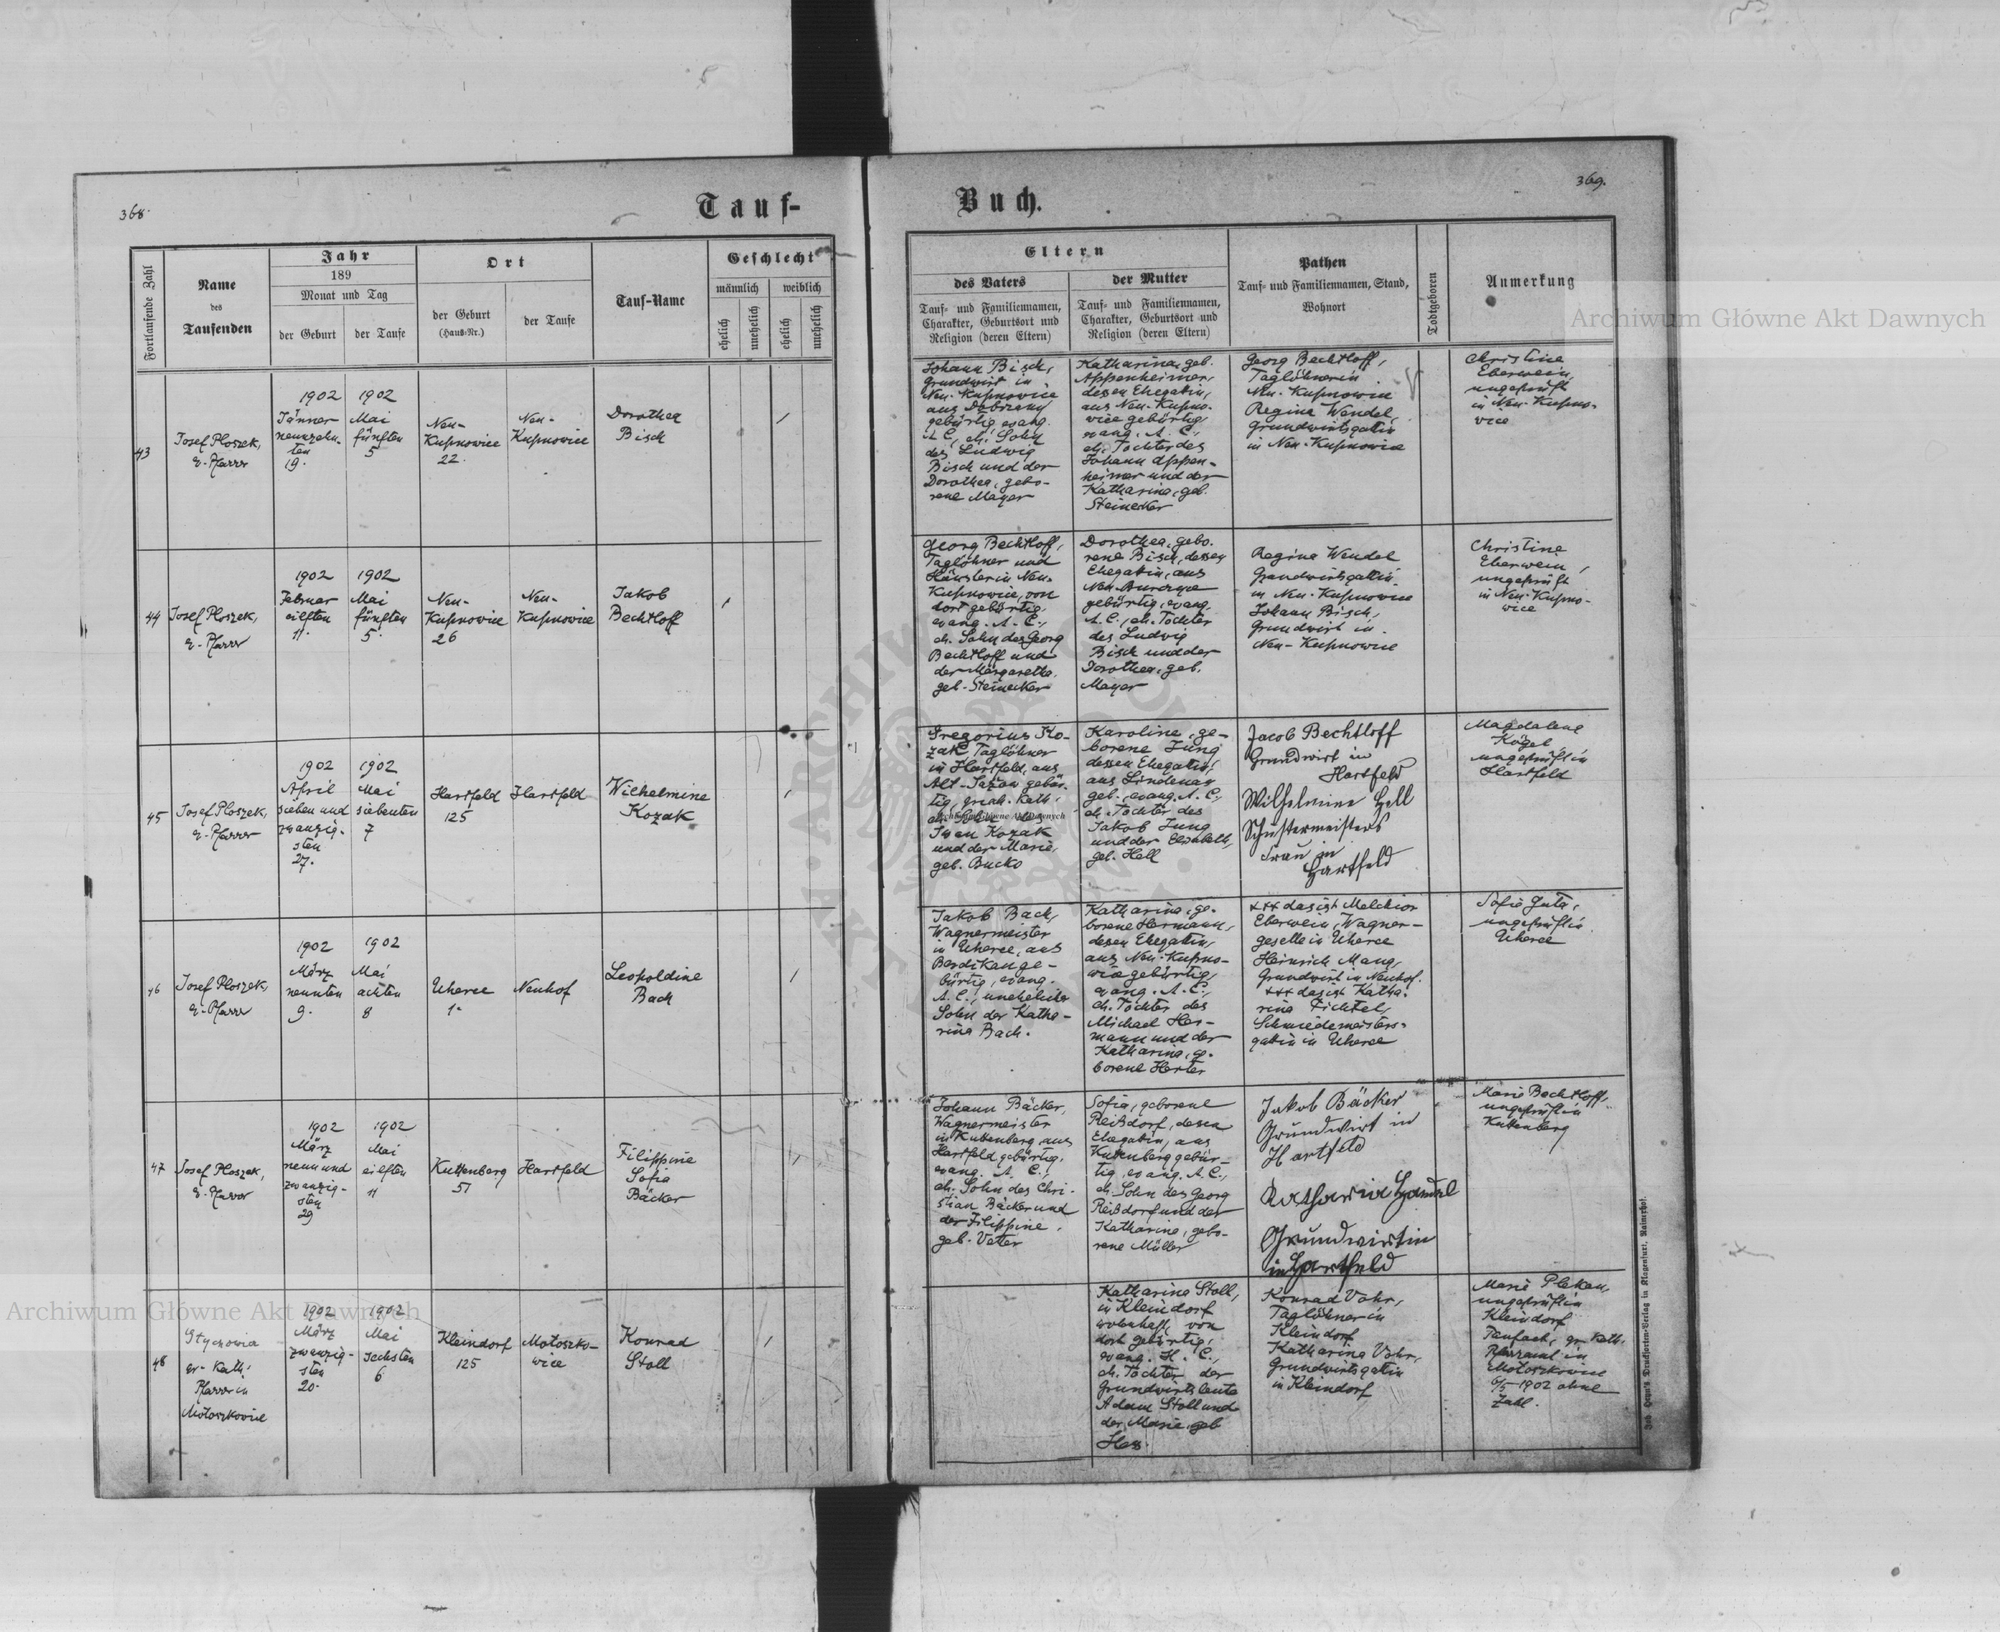 368.
Tauf-
Fortlaufende Zahl
Name
des
Taufenden
Jahr
189
Monat und Tag
der Geburt
der Taufe
Ort
der Geburt
(Haus-Nr.)
der Taufe
Tauf-Name
Geschlecht
männlich
weiblich
ehelich
unehelich
ehelich
unehelich
43
Josef Ploszek,
e. Pfarrer
1902
Jänner
neunzehn-
ten
19.
1902
Mai
fünften
5
Neu-
Kupnowice
22.
Neu-
Kupnowice
Dorothea
Bisch
44
Josef Ploszek,
e. Pfarrer
1902
Februar
eilften
11.
1902
Mai
fünften
5.
Neu-
Kupnowice
26
Neu-
Kupnowice
Jakob
Bechtloff
45
Josef Ploszek,
e. Pfarrer
1902
April
sieben und
zwanzig-
sten
27.
1902
Mai
siebenten
7
Hartfeld
125
Hartfeld
Wilhelmine
Kozak
46
Josef Ploszek,
e. Pfarrer
1902
März
neunten
9.
1902
Mai
achten
8
Uherce
1.
Neuhof
Leopoldine
Bach
47
Josef Ploszek,
e. Pfarrer
1902
März
neun und
zwanzig-
sten
29
1902
Mai
eilften
11
Kuttenberg
51
Hartfeld
Filippine
Sofia
Bäcker
48
gr. kath.
Pfarrer in
Mołoszkowice
1902
März
zwanzig-
sten
20.
1902
Mai
sechsten
6
Kleindorf
125
Mołoszko-
wice
Konrad
Stoll
Buch.
369.
Eltern
des Vaters
Tauf- und Familiennamen,
Charakter, Geburtsort und
Religion (deren Eltern)
der Mutter
Tauf- und Familiennamen,
Charakter, Geburtsort und
Religion (deren Eltern)
Pathen
Tauf- und Familiennamen, Stand,
Wohnort
Todtgeboren
Anmerkung
Johann Bisch,
Grundwirt in
Neu-Kupnowice
aus Dobrzany
gebürtig, evang.
A.C., eh. Sohn
des Ludwig
Bisch und der
Dorothea, gebo-
rene Mayer
Katharina, geb.
Appenheimer,
dessen Ehegattin,
aus Neu-Kupno-
wice gebürtig,
evang. A.C.,
eh. Tochter des
Johann Appen-
heimer und der
Katharina, geb.
Steinecker
Georg Bechtloff,
Taglöhner in
Neu-Kupnowice
Regina Wendel
Grundwirtsgattin
in Neu-Kupnowice
Christine
Eberwein,
ungeprüft
in Neu-Kupno-
wice
Georg Bechtloff,
Taglöhner und
Häusler in Neu-
Kupnowice, von
dort gebürtig,
evang. A.C.,
eh. Sohn des Georg
Bechtloff und
der Margaretha,
geb. Steinecker
Dorothea, gebo-
rene Bisch, dessen
Ehegattin, aus
Neu-Burczyce
gebürtig, evang.
A.C., eh. Tochter
des Ludwig
Bisch und der
Dorothea, geb.
Mayer
Regina Wendel
Grundwirtsgattin
in Neu-Kupnowice
Johann Bisch,
Grundwirt in
Neu-Kupnowice
Christine
Eberwein,
ungeprüft
in Neu-Kupno-
wice
Gregorius Ko-
zak, Taglöhner
in Hartfeld, aus
Alt-Jażów gebür-
tig, griech. kath.,
eh. Sohn des
Iwan Kozak
und der Maria,
geb. Bucko
Karoline, ge-
borene Jung
dessen Ehegattin,
aus Lindenau
geb., evang. A.C.,
eh. Tochter des
Jakob Jung
und der Elisabeth,
geb. Hell
Jacob Bechtloff
Grundwirt in
Hartfeld
Wilhelmine Hell
Schustermeisters
Frau in
Hartfeld
Magdalena
Kögel
ungeprüft in
Hartfeld
Jakob Bach,
Wagnermeister
in Uherce, aus
Berdikau ge-
bürtig, evang.
A.C., unehelicher
Sohn der Katha-
rina Bach.
Katharina, ge-
borene Hermann,
dessen Ehegattin,
aus Neu-Kupno-
wice gebürtig,
evang. A.C.,
eh. Tochter des
Michael Her-
mann und der
Katharina, ge-
borene Herter
+++ das ist Melchior
Eberwein, Wagner-
geselle in Uherce
Heinrich Mang,
Grundwirt in Neuhof.
+++ das ist Katha-
rina Fichtel,
Schmiedemeisters-
gattin in Uherce
Sofie Guta,
ungeprüft in
Uherce
Johann Bäcker,
Wagnermeister
in Kuttenberg, aus
Hartfeld gebürtig,
evang. A.C.,
eh. Sohn des Chri-
stian Bäcker und
der Filippine,
geb. Vetter
Sofia, geborene
Reißdorf, dessen
Ehegattin, aus
Kuttenberg gebür-
tig, evang. A.C.,
eh. Sohn des Georg
Reißdorf und der
Katharina, gebo-
rene Müller
Jakob Bäcker
Grundwirt in
Hartfeld
Katharina Handel
Grundwirtin
in Hartfeld
Marie Bechtloff,
ungeprüft in
Kuttenberg
Katharina Stoll,
in Kleindorf
wohnhaft, von
dort gebürtig,
evang. H.C.,
eh. Tochter der
Grundwirtsleute
Adam Stoll und
der Marie, geb
Hess.
Konrad Vohr,
Taglöhner in
Kleindorf
Katharina Vohr,
Grundwirtsgattin
in Kleindorf
Marie Plekan,
ungeprüft in
Kleindorf
gr. kath.
Pfarramt in
Mołoszkowice
6/5 1902 ohne
Zahl.
Joh. Leon's Drucksorten-Verlag in Klagenfurt, Rainerhof.
Archiwum Główne Akt Dawnych
Archiwum Główne Akt Dawnych
Archiwum Główne Akt Dawnych